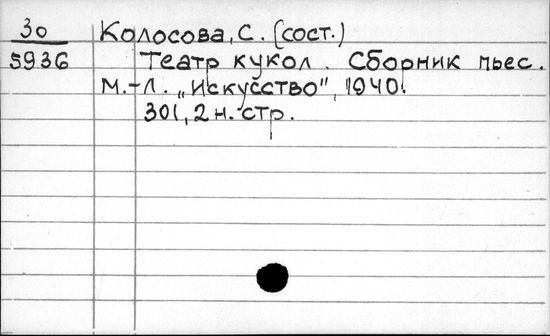 30 Колосова, С. (сост.)
5936 Театр кукол. Сборник пьес.
М.-Л. „Искусство", 1940.
301, 2 н. стр.